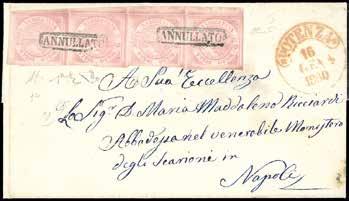 ANNULLATO ANNULLATO
POTENZA
16
GEN
1860
A Sua Eccellenza
La Sig.ª D. Maria Maddalena Ricciardi
Abbadessa nel venerabile Monistero
degli Scarioni in
Napoli